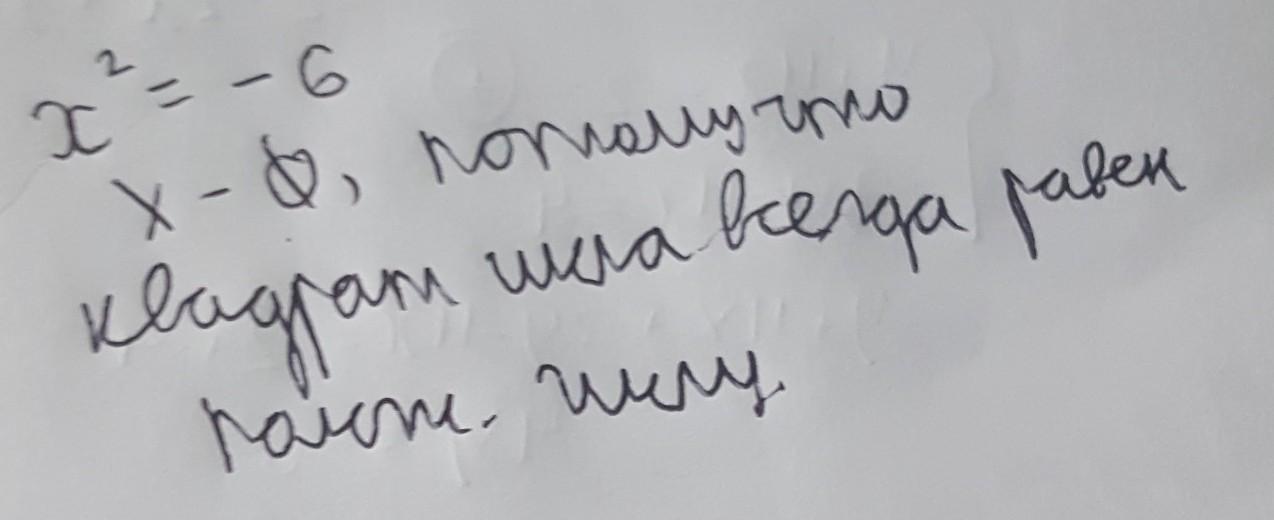 x² = - 6
x - ∅, потому что
квадрат числа всегда равен
полож. числу.